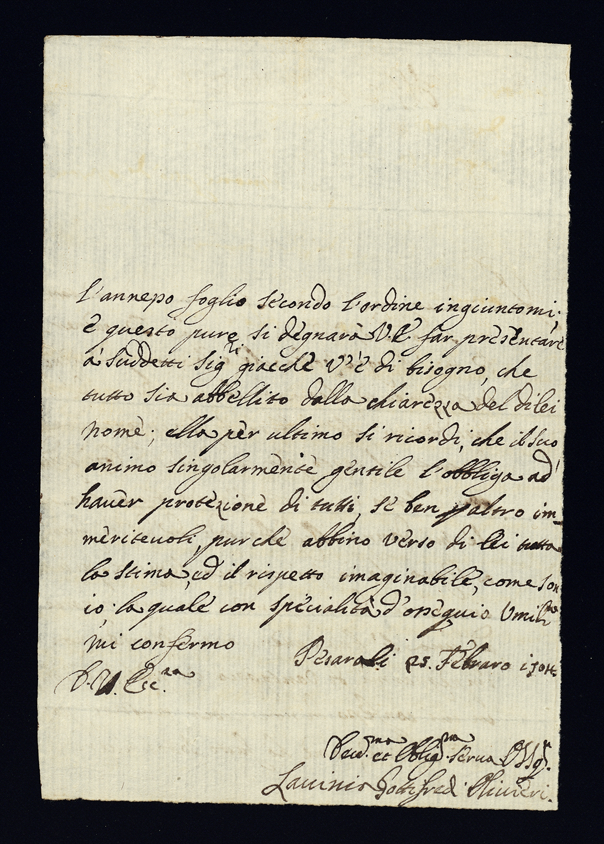 l'annesso foglio secondo l'ordine ingiuntomi.
è questo pure si degnarà V.E. far presentare
à suddetti Sig.ri giacchè v'è di bisogno, che
tutto sia abbellito dalla chiarezza del di lei
nome; ella per ultimo si ricordi, che il suo
animo singolarmente gentile l'obbliga ad
haver protezione di tutti, se ben p altro im-
meritevoli, purche abbino verso di lei tutta
la stima, ed il rispetto imaginabile, come son
io, la quale con specialità d'ossequio Umil.ma
mi confermo
Pesaro li 25. Febraro
D. V. Ecc.za
Dev.ma et Oblig.ma Serva
Lavinia Gottifredi Olivieri.